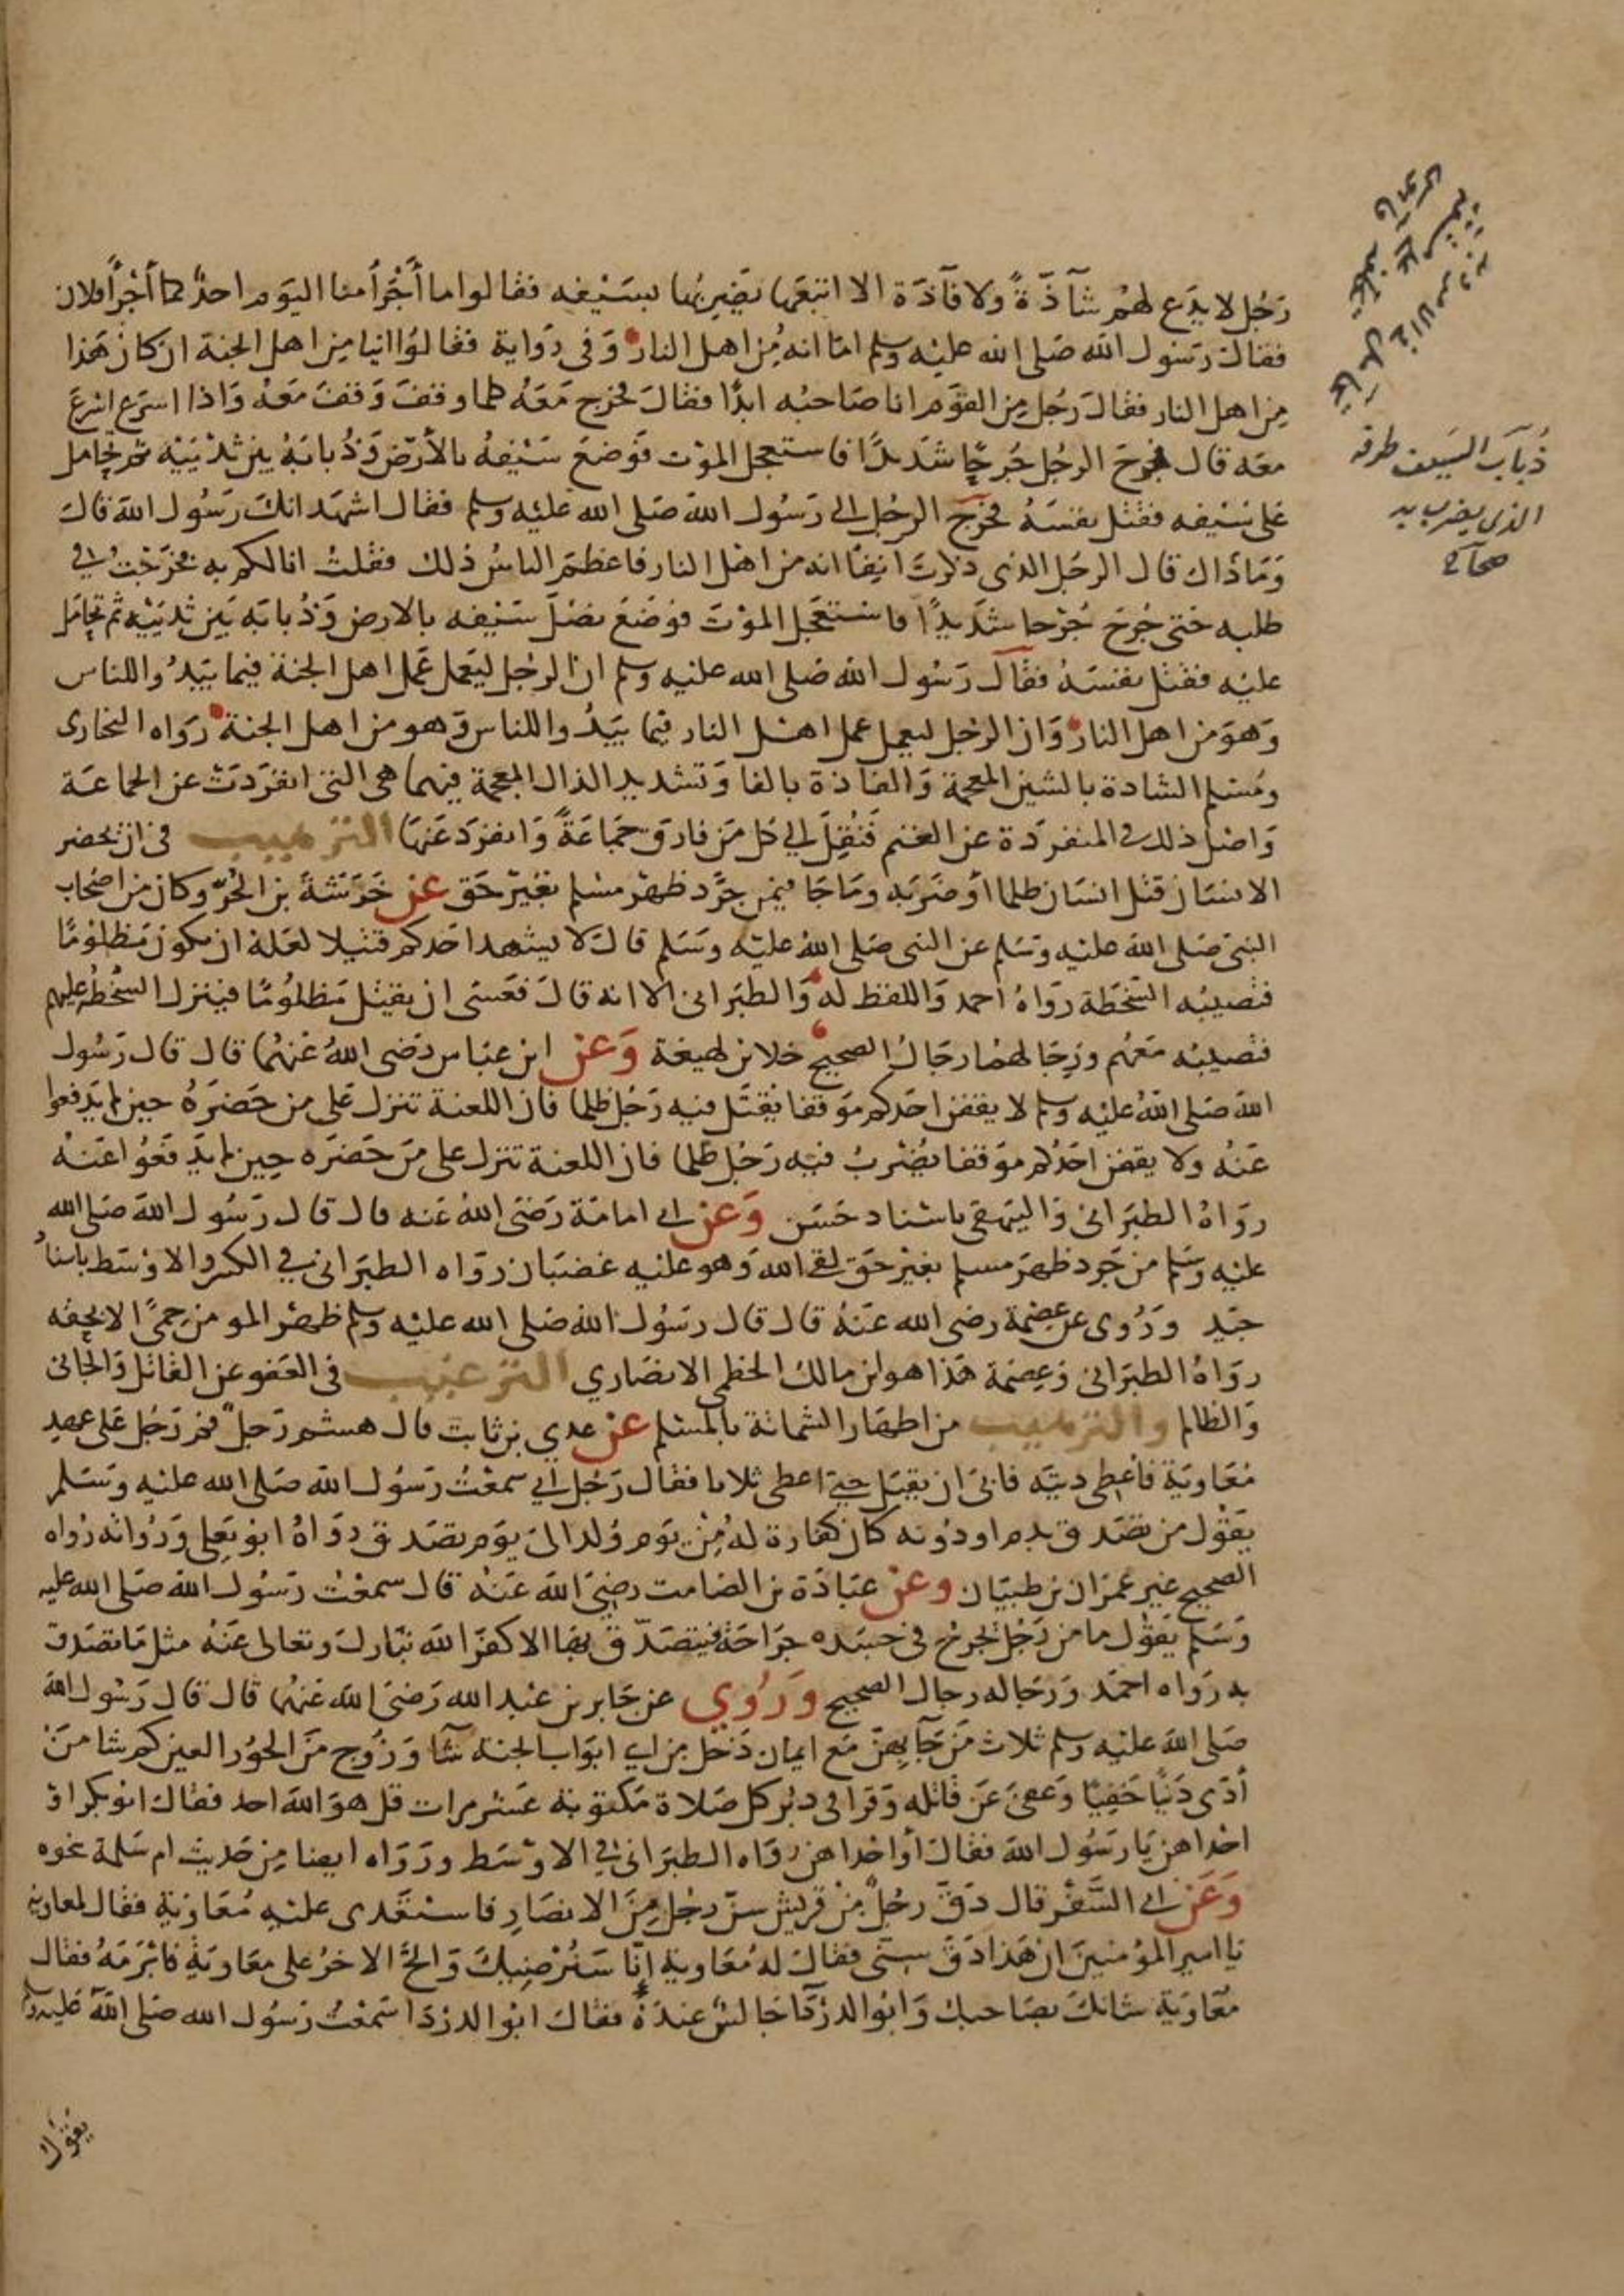 رَجُل لا يدَع لهُم شآذّةً ولا فآذة الا اتبعَها يضَربُها بسَيْفه فقالوا ما أَجْزَأَ منا اليَوم احدٌ كما أَجْزَأ فلان
فقال رسُول الله صَلى الله عليْه وسلم امَا انه مِن اهل النار وَفى رَوايةِ فقالوُا اينا مِن اهل الجنة ان كان هَذا
مِن اهل النار فقالَ رَجُل مِن القوَم انا صَاحبُه ابدًا فقالَ فخرَج مَعَهُ كلما وقفَ وَقفَ مَعَهُ وَاذا اسرَع اسْرعَ
معَه قال فجُرحَ الرجُل جُرحًا شدَيدًا فاستعجل الموْت فوَضعَ سَيْفهُ بالأرَض وَذُبابَهُ بين ثدْيَيْه ثم تحَامل
على سَيْفه فقَتل نفسَهُ فخَرَج الرجُل الى رَسُول الله صَلى الله عليْه وسلم فقال اشهَد انكَ رَسُول الله قالَ
وَمَا ذَاك قال الرجُل الذى ذكرتَ انِفًا انه من اهْل النار فاعظمَ الناسُ ذلك فقلتُ انا لكم به فخرَجْتُ فى
طلبه حَتى جُرحَ جُرْحا شدَيدًا فاستعجَل الموْتَ فوَضَعَ نصْلَ سَيْفه بالارض وَذُبابَه بَين ثديَيْه ثم تحَامَل
عليْه فقتَل نفسَهُ فقالَ رَسُول الله صَلى الله عليْه وسلم ان الرجُل ليَعمل عَمَل اهل الجنة فيمَا يَبدُو للناس
وَهوَ من اهل النار وَان الرجُل ليعمل عمل اهْل النار فيما يبَدُو للناس وَهو من اهل الجنة رَواه البخارى
ومُسْلم الشاذة بالشين المعجمة وَالفاذة بالفا وَتشديد الذال المعجمة فيهما هى التى انفرَدتْ عن الجماعَة
وَاصْل ذلك فى المنفردَة عن الغنم فنُقِلَ الى كل مَن فارقَ جمَاعَةً وَانفرَد عَنهَا الترهيب فى ان يحضر
الانسَان قتل انسَان ظلما أو ضرَبَه ومَا جَا فيمن جرَّد ظهْر مسْلم بغيْر حَق عن خَرَشَةَ بن الحُرّ وكان من اصْحاب
النبىّ صَلى الله عليْه وَسَلم عن النبى صَلى اللهُ عليْه وسَلم قالَ لا يشهد احَدكم قتيلا لعَلهُ ان يكون مَظلوْمًا
فتُصيبُه السّخَطَة رَوَاهُ احمد وَاللفظ له وَالطبَرانى الا انه قالَ فعَسَى ان يقتَل مَظلوُمًا فينزل السُّخطُ عليهم
فتُصيبُه مَعَهُم ورِجَالهمُا رجَالُ الصحيح خلا بن لهيعَة وَعَن ابن عبَاس رَضى اللهُ عَنهُما قال قال رَسُول
الله صَلى اللهُ عليْه وسلم لا يقفن احَدكم موَقفا يُقتَل فيه رَجُل ظلما فان اللعنة تنزل عَلى من حَضرَهُ حين لم يَدفعوا
عَنهُ ولا يقفن احَدُكم موَقفا يُضْربُ فيه رَجُل ظلما فان اللعنة تنزل على مَن حَضرَه حِين لم يدَفعُوا عَنهُ
روَاهُ الطبَرانى وَالبيَهقى باسْناد حَسَن وَعَن ابى امامَة رَضىَ اللهُ عَنه قال قال رَسُول اللهَ صَلى الله
عليْه وسَلم من جَرد ظهرَ مسلم بغيْر حَق لقى الله وَهو عليْه غضبَان روَاه الطبَرانى في الكبير والاوْسَط باسناد
جيّد ورُوى عن عِصْمة رضى الله عَنهُ قال قال رسُول الله صَلى الله عليْه وسلم ظهْر المومن حِمىً الا بحقه
روَاهُ الطبَرانى وَعِصْمة هَذا هو ابن مالك الخطمى الانصَاري الترغيب فى العَفو عن القاتل وَالجانى
وَالظالم والترهيب من اظهَار الشماتة بالمسْلم عن عدي بن ثابت قال هشم رَجلٌ فمَ رَجُل عَلى عهد
مُعَاويَة فأعْطى ديته فابىَ ان يقبَل حتى اعطى ثلاثا فقال رَجُل انى سمعْتُ رَسُول اللهَ صَلى الله عليْه وسَلم
يقوُل من تصَدق بدم او دوُنه كان كفارة لهُ مِنْ يوَم وُلد الىَ يوَم تصَدق روَاهُ ابوُ يَعلى وَرُواته رُواه
الصحيح غير عمرَان بن ظبيَان وعن عبَادَة بن الصَامت رضِىَ الله عَنْه قال سمعْتُ رسُول الله صَلى الله عليه
وَسَلم يقوُل مَا من رَجُل يُجرحُ فى جسَده جرَاحَة فيتصَدّق بهَا الا كفرَ الله تبَاركَ وتعالى عَنْهُ مثل مَا تصَدق
به رَوَاه احمَد وَرجَاله رجال الصحيح وَرُوي عن جَابر بن عبْد الله رَضىَ الله عَنهُما قال قال رَسُول الله
صَلى اللهَ عليْه وسلم ثلاث مَن جَآ بهِنّ مَع ايمان دَخل مِن اىِ ابوَاب الجنة شآ وَزُوج مَن الحُور العين كم شا مَنْ
أدّى دَيْنًا خَفِيًا وَعفىَ عَن قاتله وَقرَا فى دبُر كل صَلاة مكتوبَة عَشر مرات قل هوَ اللهَ احد فقال ابو بكر او
احدَاهن يَا رسُول الله فقالَ أو احداهن روَاه الطبَرانى فى الاوْسَط ورَوَاه ايضا مِن حَديث ام سَلمة نحوه
وَعَن ابى السَّفَر قال دَقّ رجُلٌ مِنْ قريش سِنّ رجُل مِنَ الانصَارِ فاستَعْدى عليْه مُعَاوَيَة فقال لمعاوية
يا امير المؤمنينَ ان هَذا دَقّ سِنّى فقالَ لهُ مُعَاوية إنّا سَنُرْضِيكَ وَالحَّ الاخرُ على معَاويَةَ فابْرَمَهُ فقال
معَاوَيَة شانكَ بصَاحبكَ وَابوُ الدرْدَآ جَالسٌ عندَهُ فقالَ ابوُ الدرْدَا سَمعْتُ رَسُول الله صَلى اللهَ عَليْه وسلم
ذُبابُ السَّيف طرفه
الذى يضرب به
صحاح
يَقوُل